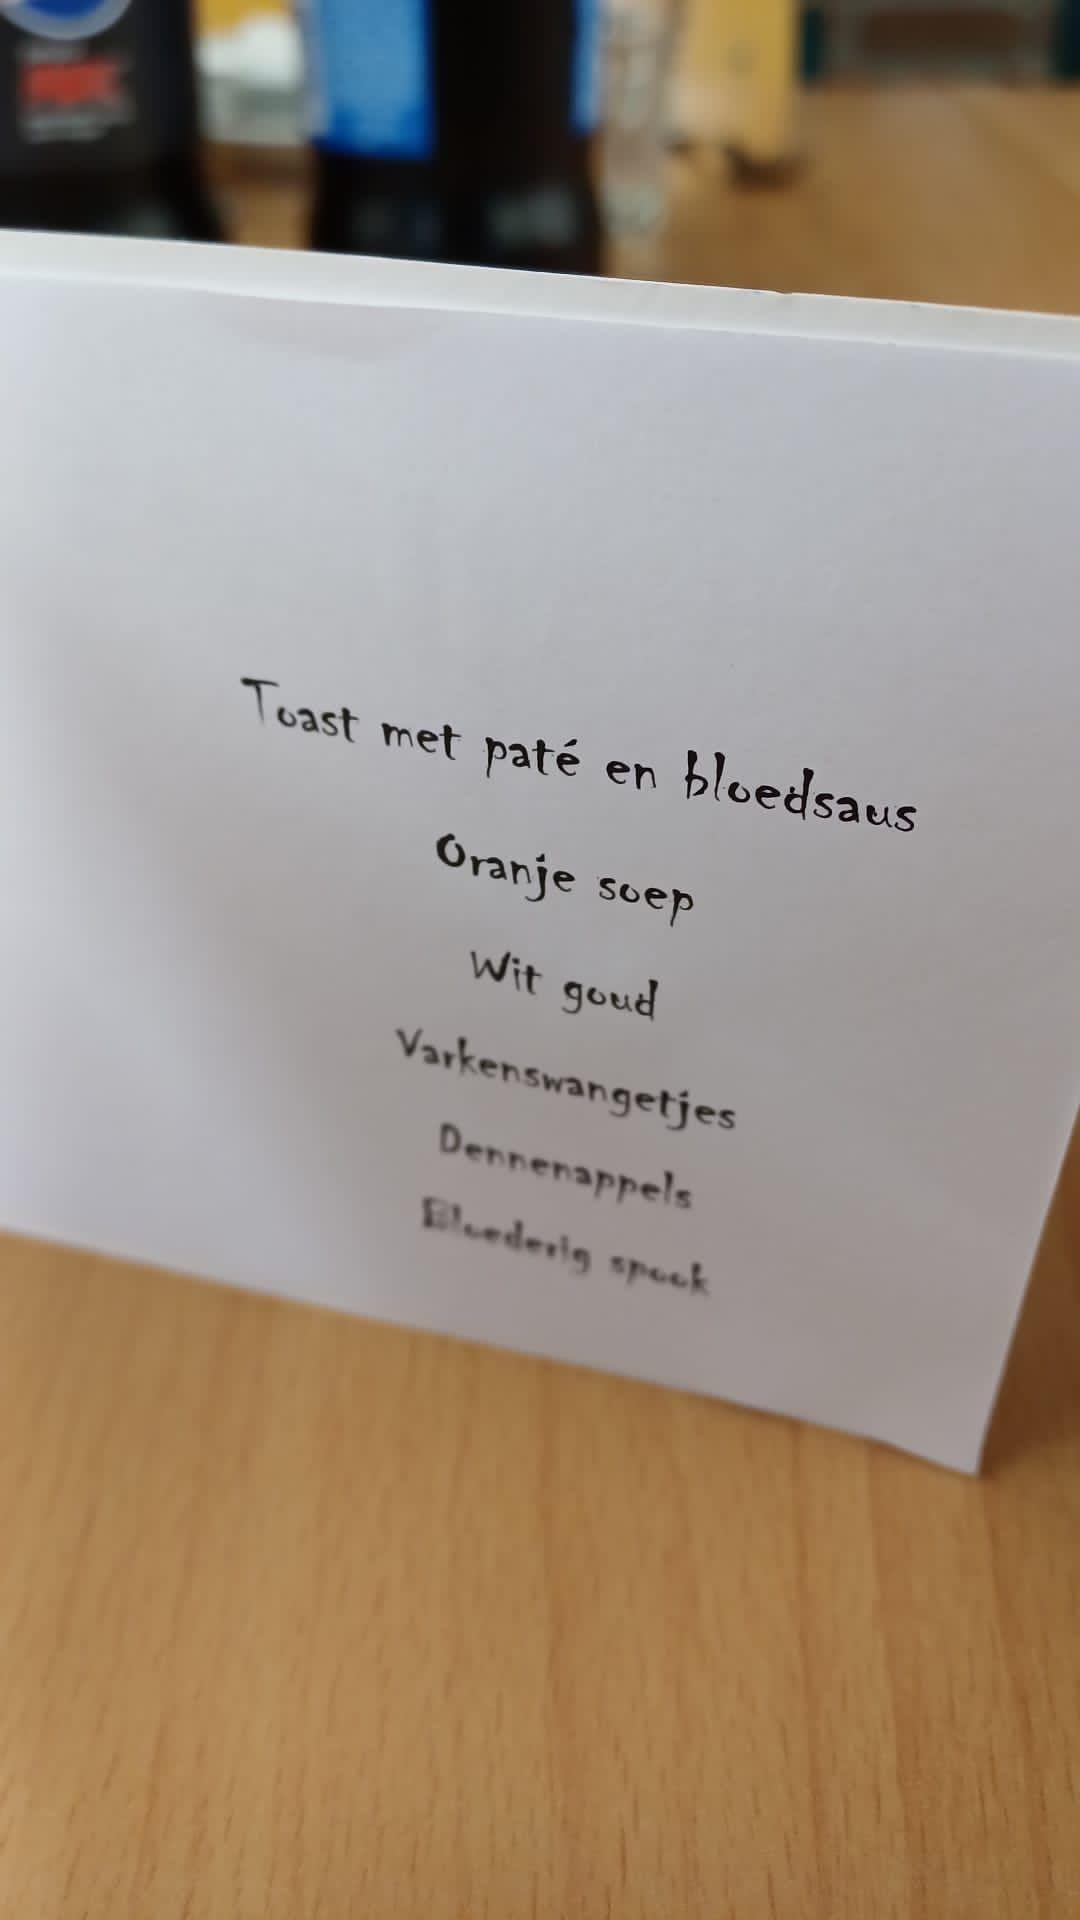 Toast met paté en bloedsaus
Oranje soep
Wit goud
Varkenswangetjes
Dennenappels
Bloederig spook